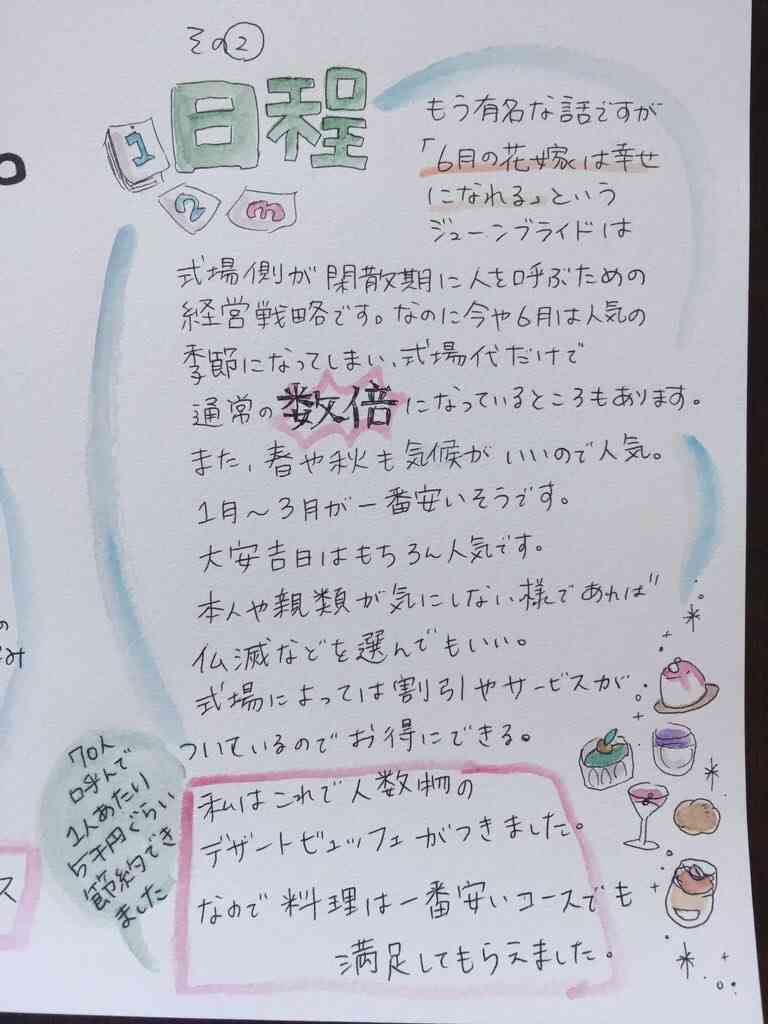 その②
日程
1
2
3
もう有名な話ですが
「6月の花嫁は幸せ
になれる」という
ジューンブライドは
式場側が閑散期に人を呼ぶための
経営戦略です。なのに今や6月は人気の
季節になってしまい、式場代だけで
通常の数倍になっているところもあります。
また、春や秋も気候がいいので人気。
1月〜3月が一番安いそうです。
大安吉日はもちろん人気です。
本人や親類が気にしない様であれば
仏滅などを選んでもいい。
式場によっては割引やサービスが
ついているのでお得にできる。
私はこれで人数物の
デザートビュッフェがつきました。
なので料理は一番安いコースでも
満足してもらえました。
70人
呼んで
1人あたり
5千円ぐらい
節約でき
ました
の
み
ス